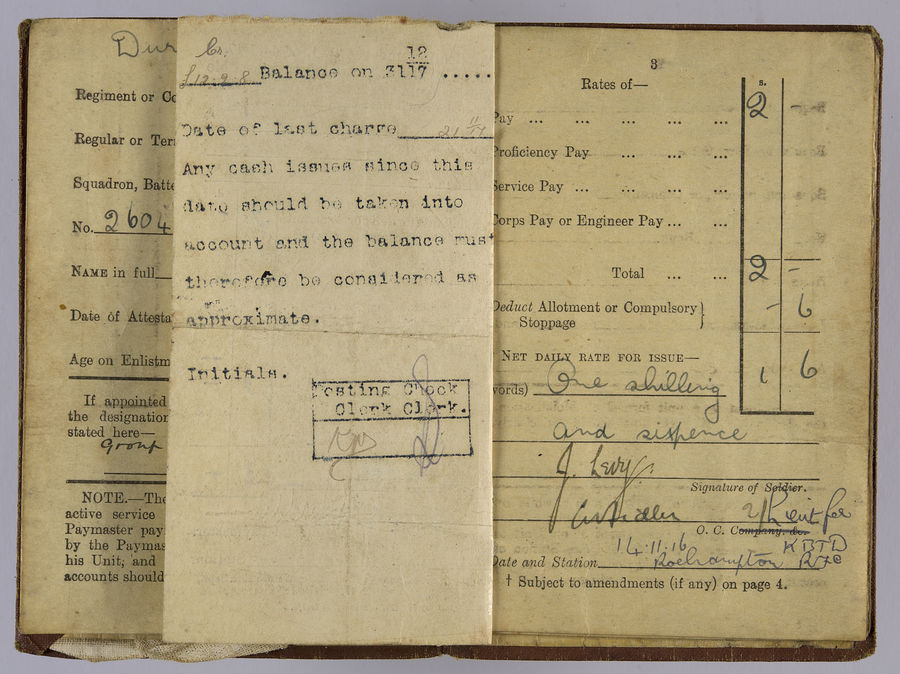 Dur
Regiment or Co
Regular or Terr
Squadron, Batte
No. 2604
NAME in full
Date of Attesta
Age on Enlistm
If appointed
the designation
stated here—
Group
NOTE.—The
active service
Paymaster pay
by the Paymas
his Unit, and
accounts should
Cr.
£12-2-8 Balance on 31 12/17 .....
Date of last charge 21 11/17
Any cash issues since this
date should be taken into
account and the balance must
therefore be considered as
approximate.
Initials.
Posting Check
Clerk Clerk.
3
Rates of—
s.
Pay ... ... ... ... ... 2 -
Proficiency Pay ... ... ...
Service Pay ... ... ... ...
Corps Pay or Engineer Pay ... ...
Total ... ... 2 -
Deduct Allotment or Compulsory
Stoppage - 6
NET DAILY RATE FOR ISSUE— 1 6
words) One shilling
and sixpence
J. Levy.
Signature of Soldier.
O. C. Company, &c.
K B T D
14.11.16
Date and Station Roehampton RFC
† Subject to amendments (if any) on page 4.